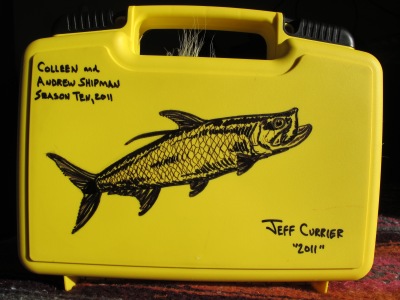 COLLEEN and
ANDREW SHIPMAN
SEASON TEN, 2011
JEFF CURRIER
"2011"